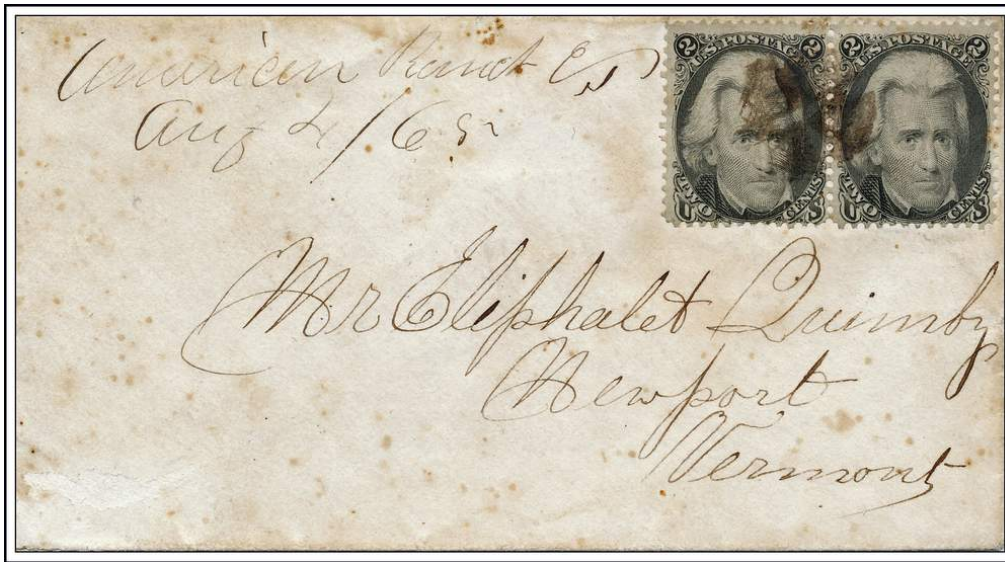 American Ranch
Aug 4/65
2 U.S. POSTAGE 2
TWO CENTS
U S
2 U.S. POSTAGE 2
TWO CENTS
U S
Mr Eliphalet Quimby
Newport
Vermont